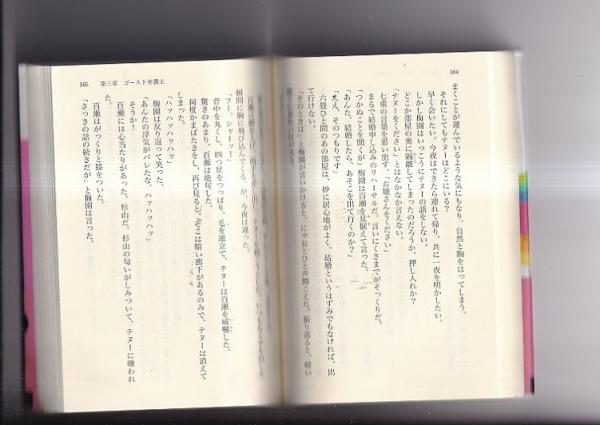 164
まくことが運んでいるような気にもなり、自然と胸をはってしまう。
それにしてもテヌーはどこにいる?
早く会いたい。今夜はできたら連れて帰り、共に一夜を明かしたい。
しかし梅園はいっこうにテヌーの話をしない。
どこか部屋の奥に隔離してしまったのだろうか。押し入れか?
「テヌーをください」とはなかなか言えない。
七重の言葉を思い出す。「お嬢さんをください」
まるで結婚申し込みのリハーサルだ。言いにくさまでがそっくりだ。
「つかぬことを聞くが」梅園は百瀬を見据えて言った。
「あんた、結婚したら、あそこを出て行くのか?」
「ええ、そのつもりです」
六畳ひと間のあの部屋は、妙に居心地がよく、結婚というはずみでもなければ、出
て行けない。
「そのときは」と梅園が言いかけると、にゃおとひと声聞こえた。振り返ると、暗い
165 第三章 ゴースト弁護士
瞬間に胸に飛び込んでくる、が、今夜は違った。
「フーッ、シャーッ!」
背中を丸くし、四つ足をつっぱり、毛を逆立て、テヌーは百瀬を威嚇した。
驚きのあまり、百瀬は絶句した。
何度かまばたきをし、再び見ると、そこは暗い廊下があるのみで、テヌーは消えて
しまった。
「ハッハッハッハッ」
梅園は反り返って笑った。
「あんたの浮気がバレたな、ハッハッハッ」
そうか!
百瀬には心当たりがあった。杉山だ。杉山の匂いがしみついて、テヌーに嫌われ
た。
百瀬はがっくりと膝をついた。
「さっきの話の続きだが」と梅園は言った。